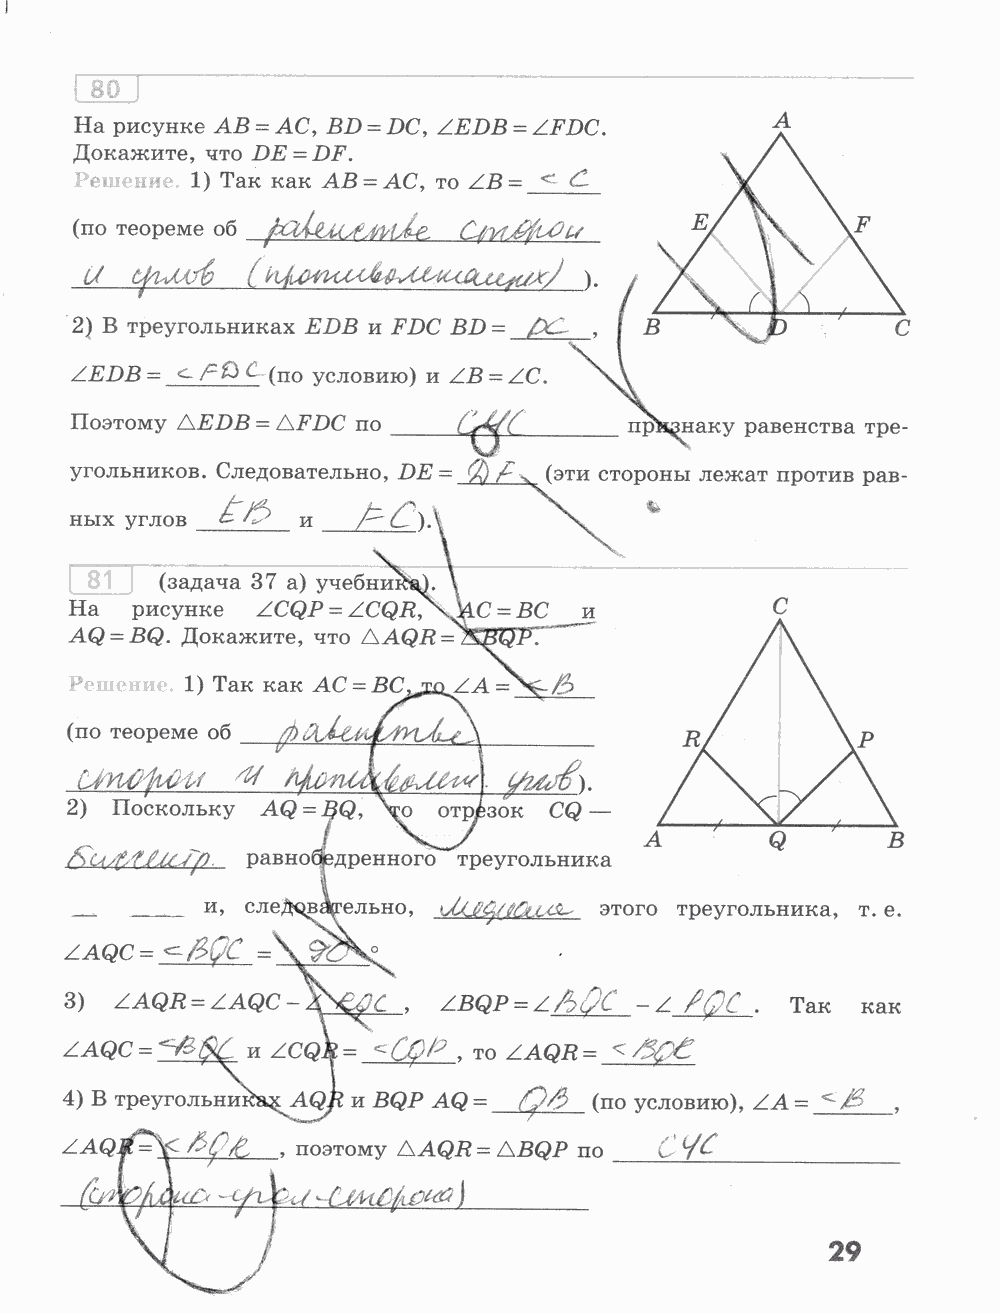 80
На рисунке AB = AC, BD = DC, ∠EDB = ∠FDC.
Докажите, что DE = DF.
Решение. 1) Так как AB = AC, то ∠B = < C
(по теореме об равенстве сторон
и углов (противолежащих) ).
2) В треугольниках EDB и FDC BD = DC ,
∠EDB = < FDC (по условию) и ∠B = ∠C.
Поэтому △EDB = △FDC по СУС признаку равенства тре-
угольников. Следовательно, DE = DF (эти стороны лежат против рав-
ных углов EB и FC ).
A
E
F
B
D
C
81 (задача 37 а) учебника).
На рисунке ∠CQP = ∠CQR, AC = BC и
AQ = BQ. Докажите, что △AQR = △BQP.
Решение. 1) Так как AC = BC, то ∠A = < B
(по теореме об равенстве
сторон и противолеж. углов ).
2) Поскольку AQ = BQ, то отрезок CQ —
биссектр. равнобедренного треугольника
и, следовательно, медиана этого треугольника, т. е.
∠AQC = < BQC = 90 °
3) ∠AQR = ∠AQC – ∠ RQC , ∠BQP = ∠ BQC – ∠ PQC . Так как
∠AQC = < BQC и ∠CQR = < CQP , то ∠AQR = < BQR
4) В треугольниках AQR и BQP AQ = QB (по условию), ∠A = < B ,
∠AQR = < BQR , поэтому △AQR = △BQP по СУС
(сторона-угол-сторона)
C
R
P
A
Q
B
29